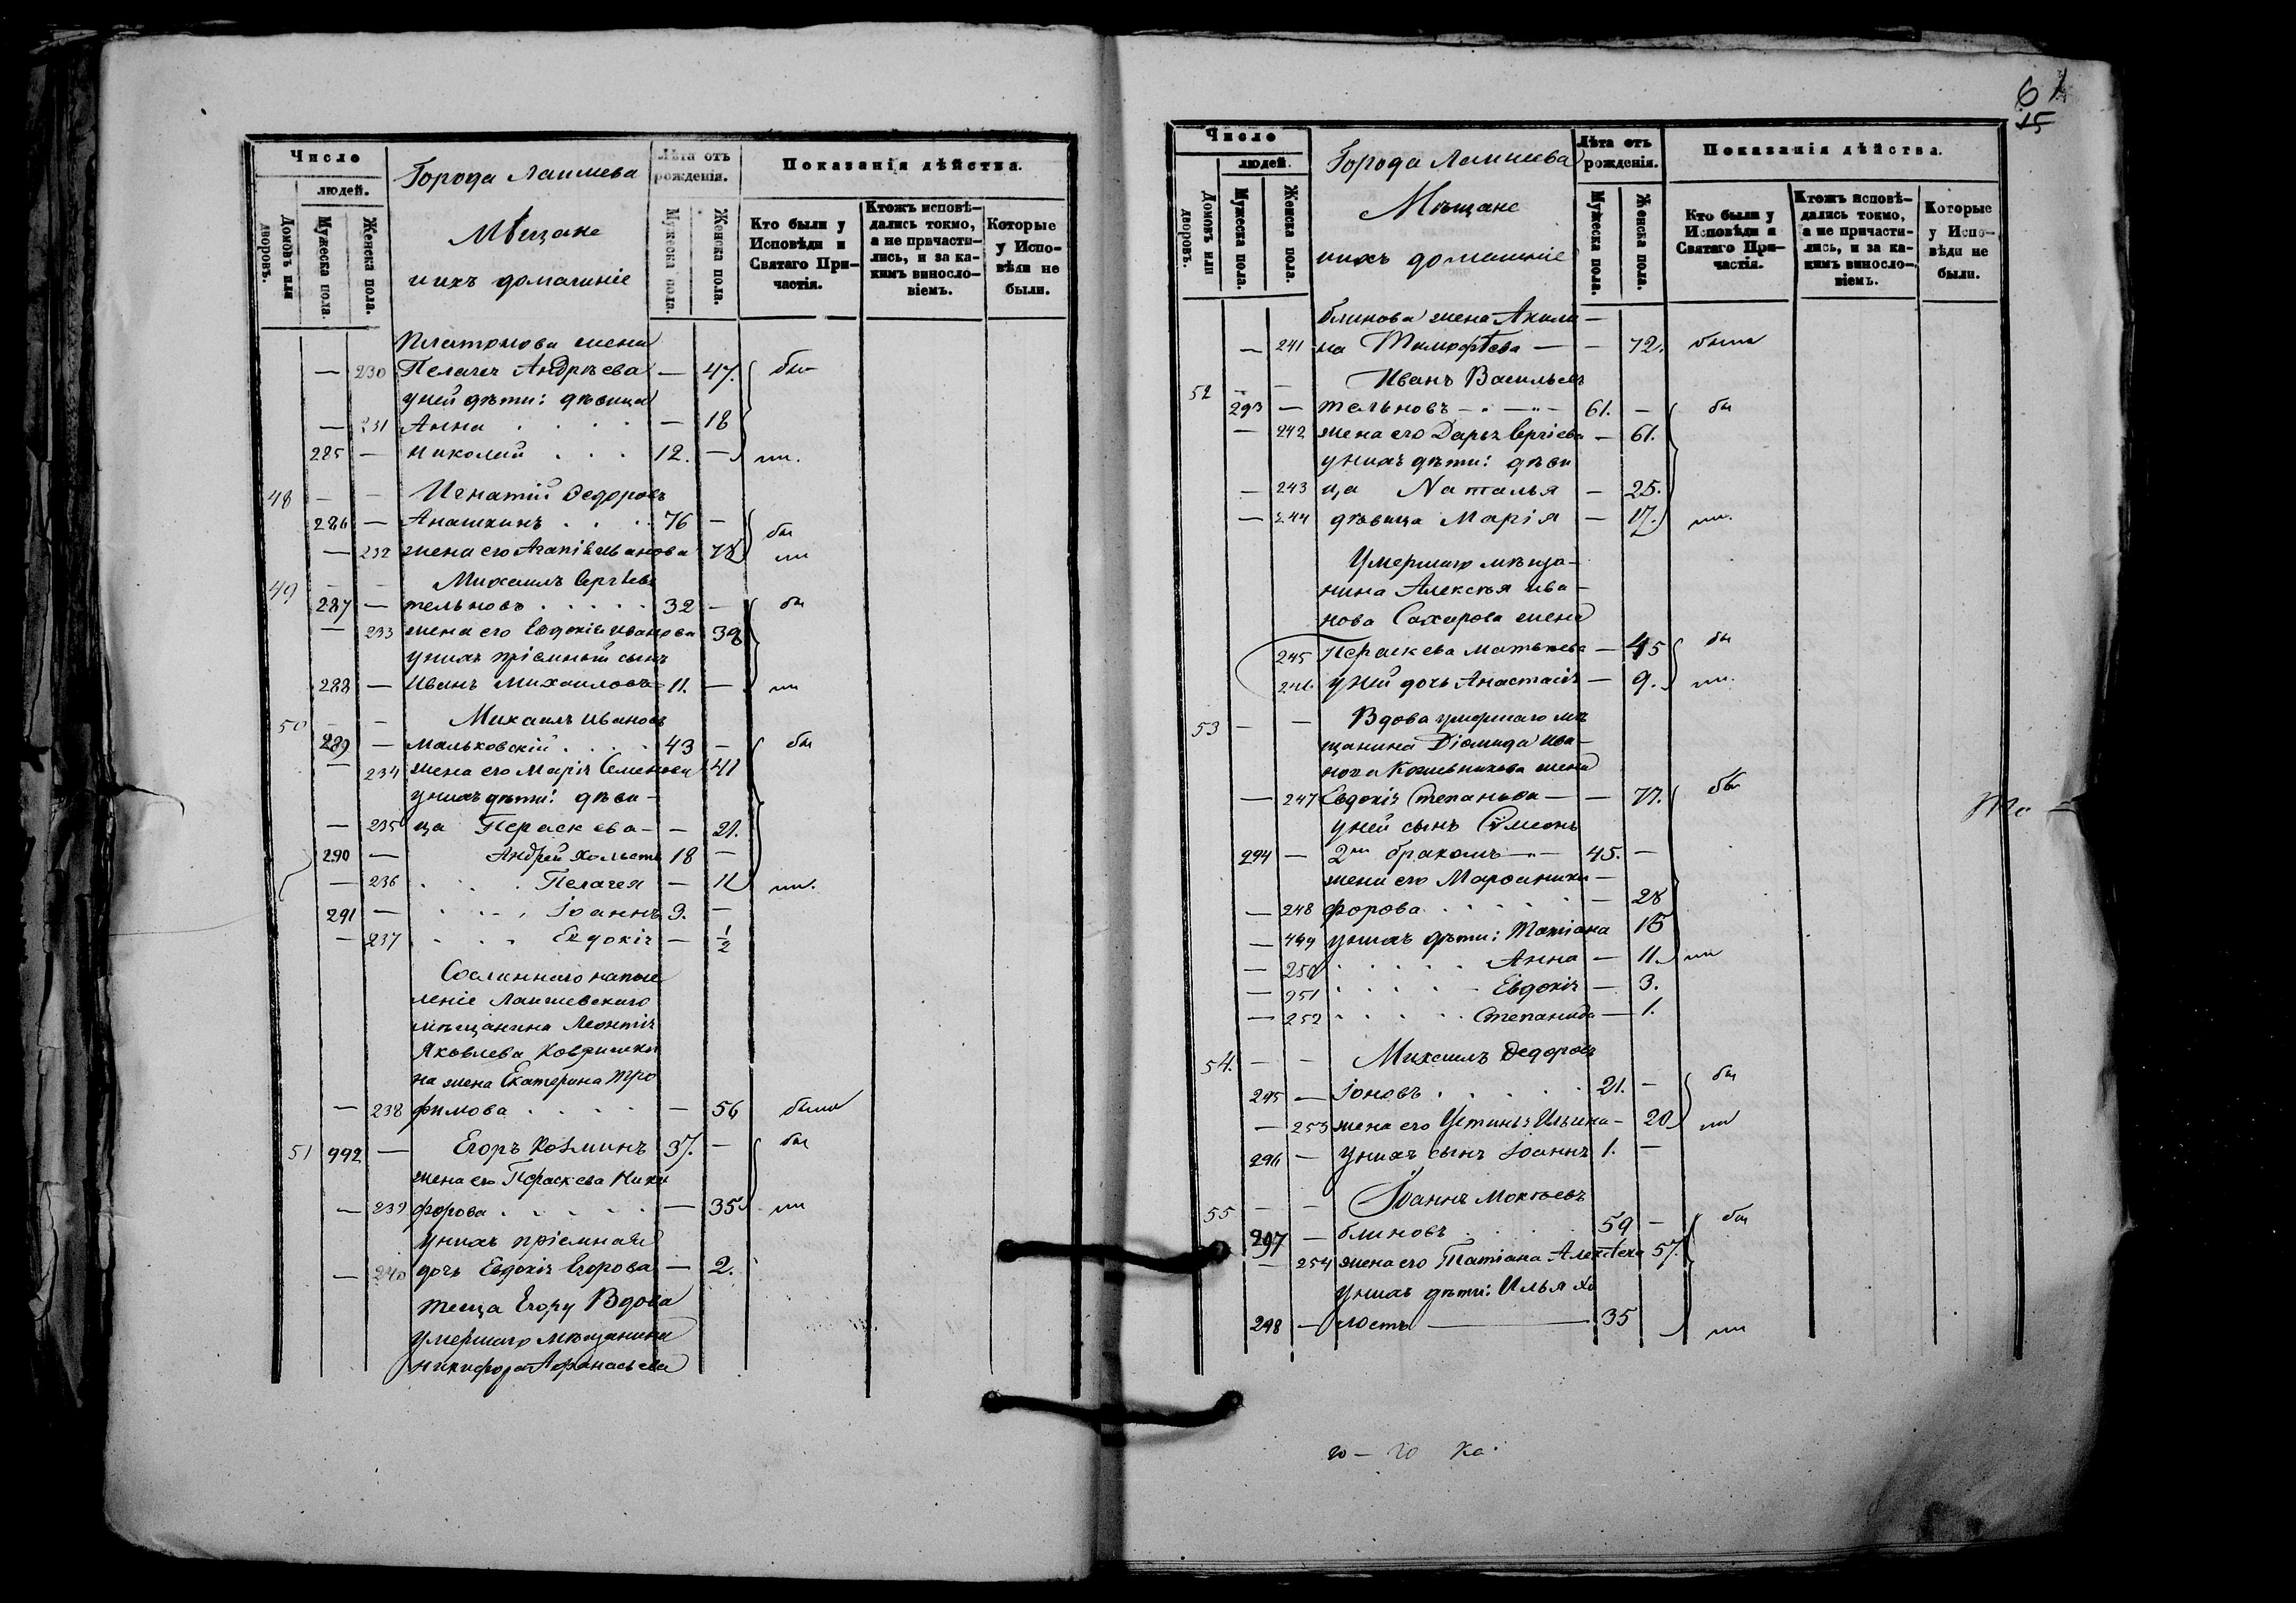 Число
людей.
Домовъ или дворовъ.
Мужеска пола.
Женска пола.
Города Лаишева
Мѣщане
и ихъ домашніе
Лѣта отъ рожденія.
Мужеска пола.
Женска пола.
Показанія дѣйства.
Кто были у Исповѣди и Святаго При-
частія.
Ктожъ исповѣ-
дались токмо,
а не причасти-
лись, и за ка-
кимъ виносло-
віемъ.
Которые
у Испо-
вѣди не
были.
Платонова жена
— 230 Пелагея Андрѣева — 47. бы-
у ней дѣти: дѣвица
— 231 Анна . . . . — 18
285 — Николай . . . 12. — ли.
48 — — Игнатій Федоровъ
286 — Анашкинъ . . . . 76 — бы
— 232 жена его Агапія Иванова 72 ли
49 — — Михаилъ Сергѣевъ
287 — тельновъ . . . . . 32 — бы
— 233 жена его Евдокія Иванова 39
у нихъ пріемный сынъ
288 — Иванъ Михаиловъ — 11. — ли
50 — — Михаилъ Ивановъ
289 — Мальковскій . . . . 43 — бы
— 234 жена его Марія Семенова 41
у нихъ дѣти: дѣви-
— 235 ца Параскева — — 21.
290 — Андрей холостъ 18 —
— 236 . . . . Пелагея — 12 ли.
291 — . . . . Іоаннъ 9. —
— 237 . . . Евдокія — 1/2
Сосланнаго на посе
леніе Лаишевскаго
мѣщанина Леонтія
Яковлева Коврижки
на жена Екатерина Тро
— 238 фимова . . . . — 56 была
51 992 — Егоръ Козминъ 37. — бы
жена его Параскева Ники
— 239 форова . . . . . — 35 ли
у нихъ пріемная
— 240 дочь Евдокія Егорова — 2.
теща Егору Вдова
умершаго мѣщанина
Никифора Афанасьева
61
15
Число
людей.
Домовъ или дворовъ.
Мужеска пола.
Женска пола.
Города Лаишева
Мѣщане
и ихъ домашніе
Лѣта отъ рожденія.
Мужеска пола.
Женска пола.
Показанія дѣйства.
Кто были у
Исповѣди и
Святаго При-
частія.
Ктожъ исповѣ-
дались токмо,
а не причасти-
лись, и за ка-
кимъ виносло-
віемъ.
Которые
у Испо-
вѣди не
были.
Блинова жена Акили —
— 241 на Тимофѣева — — 72. была
52 — — Иванъ Васильевъ
293 — тельновъ — " — " — 61. — бы
— 242 жена его Дарья Сергіева — 61.
у нихъ дѣти: дѣви
— 243 ца Наталья — 25.
— 244 дѣвица Марія — 17. ли.
Умершаго мѣща-
нина Алексѣя Ива-
нова Сахарова жена
245 Параскева Матвѣева — 45 бы
246. у ней дочь Анастасія — 9. ли.
53 — — Вдова умершаго мѣ
щанина Діомида Ива-
нова Кожевникова жена
— 247 Евдокія Степанова — — 77. бы
у ней сынъ Симеонъ
294 — 2мъ бракомъ — " — 45. —
жена его Марфа Ники —
— 248 форова . . . . . — 28
— 499 у нихъ дѣти: Татіана 15
— 250 . . . . . Анна — 11. ли
— 251 . . . . . Евдокія — 3.
— 252 . . . . . Степанида — 1.
54. — — Михаилъ Федоровъ
295 — Іоновъ . . . . . 21. — бы
— 253 жена его Устинья Ильина — 20 ли
296 — у нихъ сынъ Іоаннъ 1. —
55 — — Іоаннъ Мокѣевъ
297 — Блиновъ . . . . 59 — бы
— 254 жена его Татіана Алексѣева 57.
у нихъ дѣти: Илья хо
298 — лостъ — 35 ли